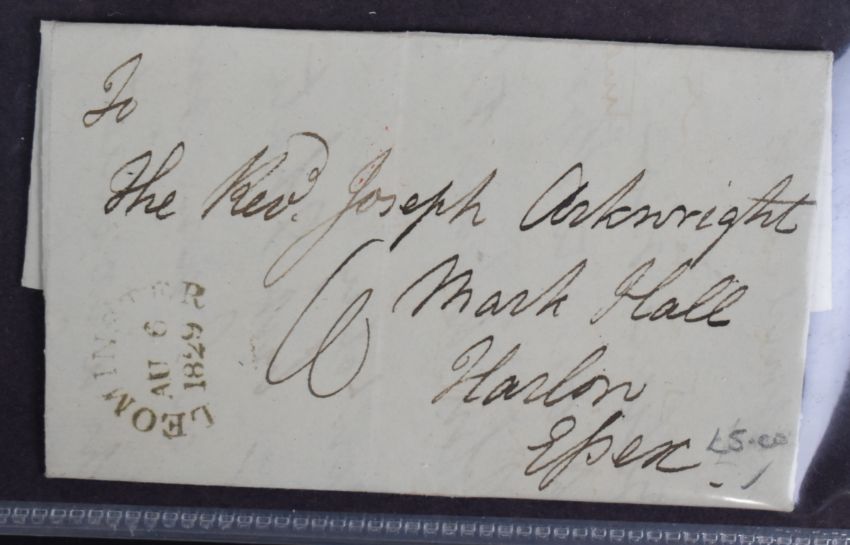 To
The Revd. Joseph Arkwright
Mark Hall
Harlow
Eſsex
6
LEOMINSTER
AU 6
1829
£5.00